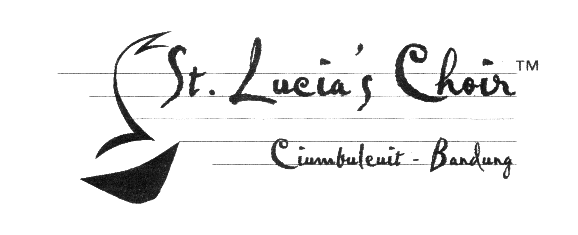 St. Lucia's Choir™
Ciumbuleuit - Bandung